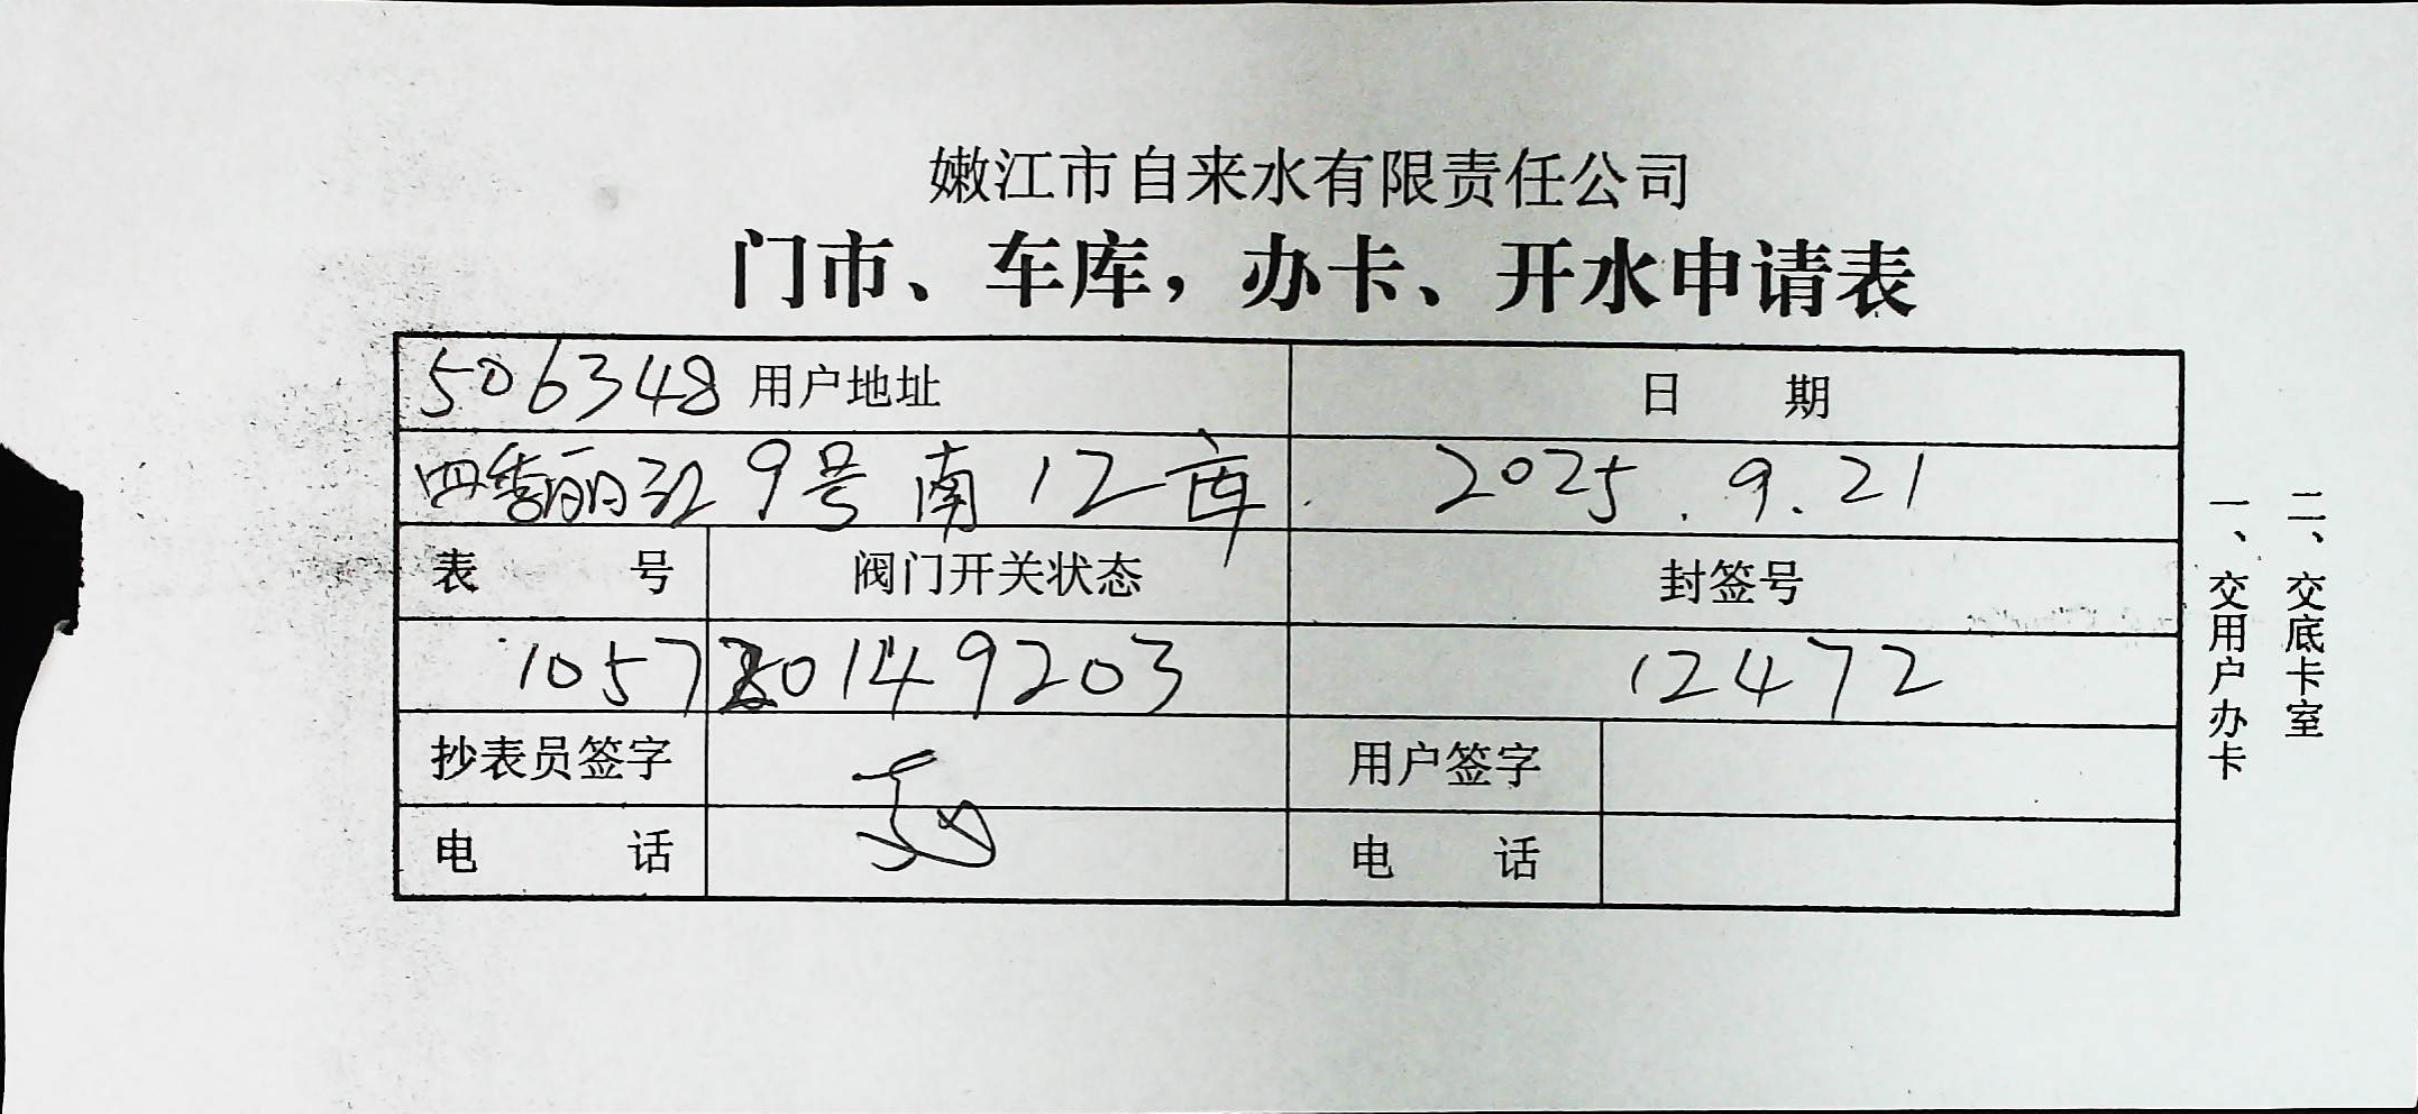 嫩江市自来水有限责任公司
门市、车库，办卡、开水申请表
506348 用户地址 日 期
四季丽江9号南12库 2025.9.21
表 号 阀门开关状态 封签号
1057 0149203 12472
抄表员签字 用户签字
电 话 电 话
一、交用户办卡
二、交底卡室